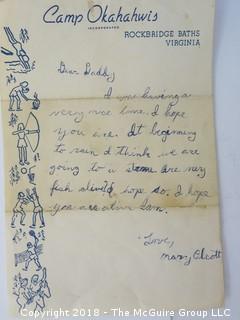 Camp Okahahwis
INCORPORATED
ROCKBRIDGE BATHS
VIRGINIA
Dear Daddy
I am having a
very nice time. I hope
you are. It beginning
to rain I think we are
going to a some are very
I hope so. I hope
you are
Love,
Mary
Copyright 2018 - The McGuire Group LLC